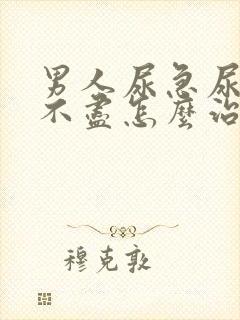 男人尿急尿
不盡怎麼治
穆克敦